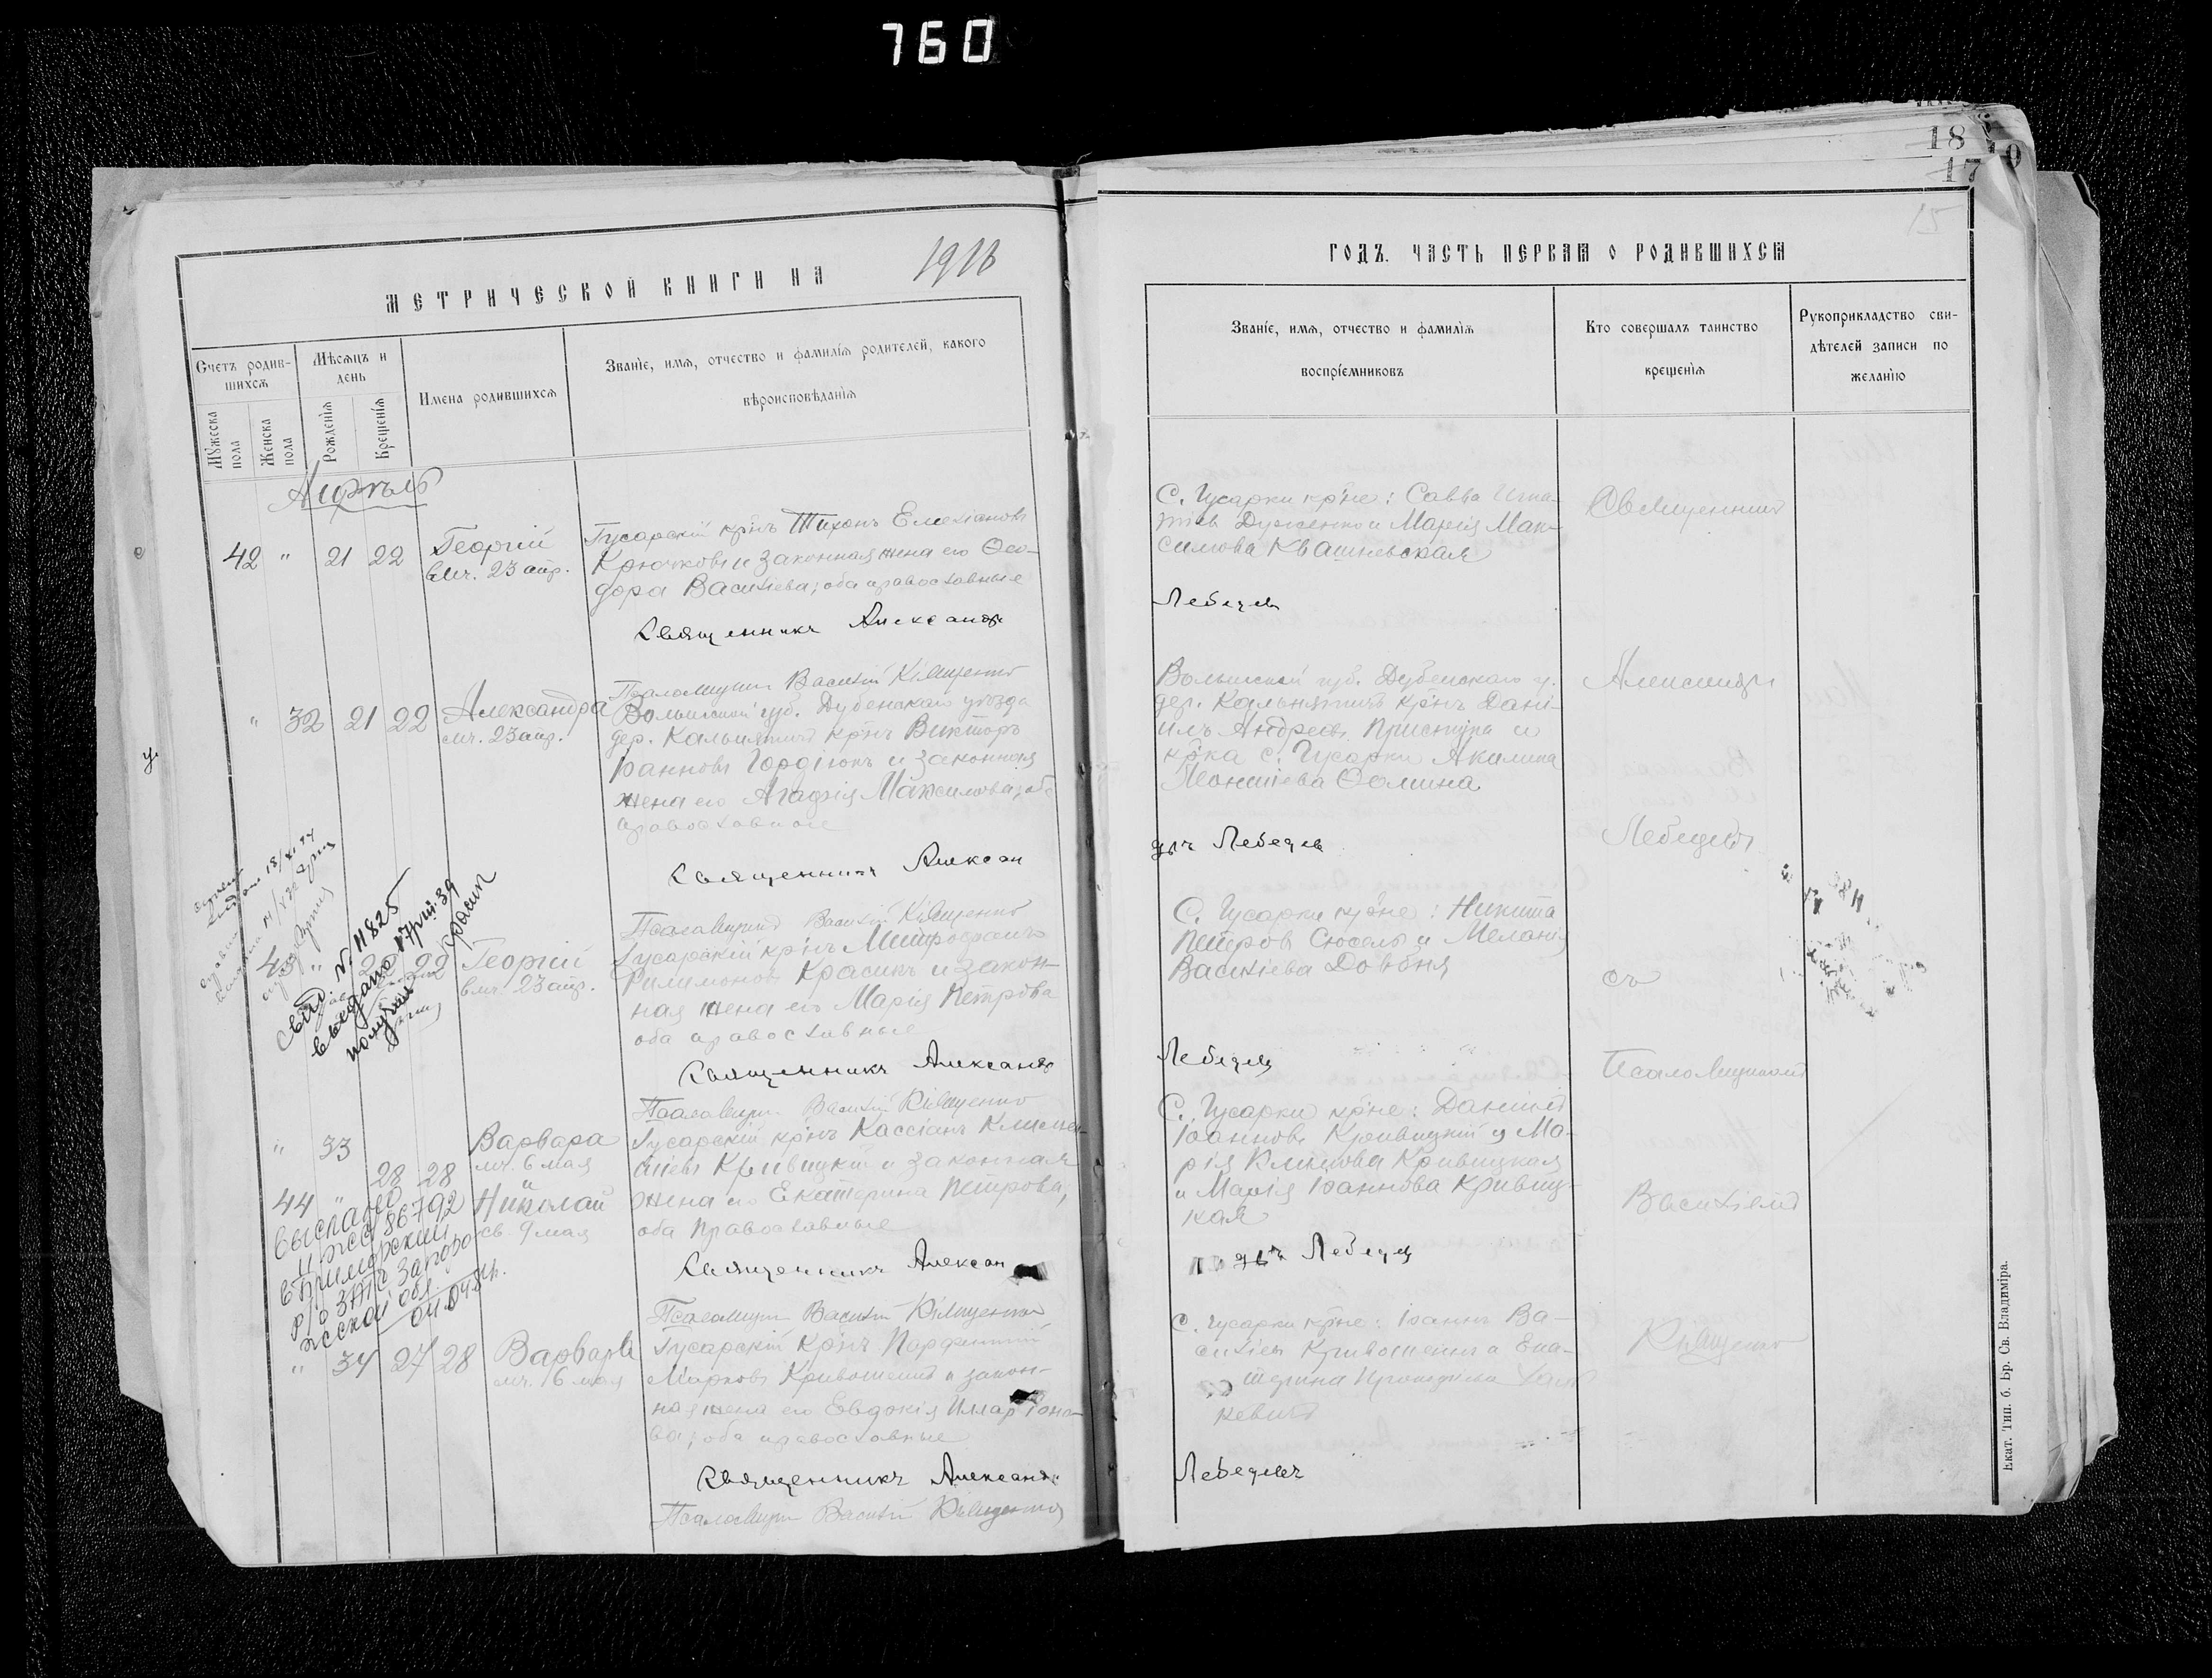 760
18
17
15
МЕТРИЧЕСКОЙ КНИГИ НА 1916
Счетъ родив-
шихся
Мѣсяцъ и
день
Имена родившихся
Званіе, имя, отчество и фамилія родителей, какого
вѣроисповѣданія
Мужеска
пола
Женска
пола
Рожденія
Крещенія
Апрѣль
42 " 21 22
Георгій
вмч. 23 апр.
Гусарскій кр-нъ Тихонъ Емеліановъ
Крючковъ и законная жена его Ѳео-
дора Василіева; оба православные
Священникъ Александръ
Псаломщикъ Василій Кіященко
" 32 21 22
Александра
мч. 23 апр.
Волынской губ. Дубенскаго уѣзда
дер. кр-нъ Викторъ
Іоанновъ Гордіюкъ и законная
жена его Агафія Максимова; оба
православные
Священникъ Алексан
Псаломщикъ Василій Кіященко
свид. № 11825
выдано
получил
Красик
43 " 22
Георгій
вмч. 23 апр.
Гусарскій кр-нъ Митрофанъ
Филимоновъ Красикъ и закон-
ная жена его Марія Петрова
оба православные
Священникъ Александръ
Псаломщикъ Василій Кіященко
" 33
28 28
44 "
Варвара
мч. 6 мая
и
Николай
св. 9 мая
Гусарскій кр-нъ Кассіанъ Климен-
тіевъ Кривицкій и законная
жена его Екатерина Петрова,
оба православные
выслано
86792
в Приморский
р/о ЗАГС Запоро
жской обл.
Священникъ Алексан
Псаломщикъ Василій Кіященко
" 34 27 28
Варвара
мч. 6 мая
Гусарскій кр-нъ Парфеній
Марковъ Кривошеинъ и закон-
ная жена его Евдокія Иларіоно-
ва; оба православные
Священникъ Александръ
Псаломщикъ Василій Кіященко
ГОДЪ. ЧАСТЬ ПЕРВАЯ О РОДИВШИХСЯ
Званіе, имя, отчество и фамилія
воспріемниковъ
Кто совершалъ таинство
крещенія
Рукоприкладство сви-
дѣтелей записи по
желанію
С. Гусарки кр-не: Савва Игна-
тіевъ и Марія Мак-
симова Квашневская
Лебедевъ
Волынской губ. Дубенскаго у.
дер. кр-нъ Дані-
илъ Андреевъ Приступа и
кр-ка с. Гусарки Акилина
Леонтіева Ѳомина
дръ Лебедевъ
С. Гусарки кр-не: Никита
Петровъ и Меланія
Василіева Довбня
Лебедевъ
С. Гусарки кр-не: Даніилъ
Іоанновъ Кривицкій и Ма-
рія Климова Кривицкая
и Марія Іоаннова Кривиц-
кая
дръ Лебедевъ
С. Гусарки кр-не: Іоаннъ Ва-
силіевъ Кривошеинъ и Ека-
терина
Лебедевъ
Священникъ
Александръ
Лебедевъ
съ
Псаломщикомъ
Василіемъ
Кіященко
Екат. Тип. б. Бр. Св. Владиміра.